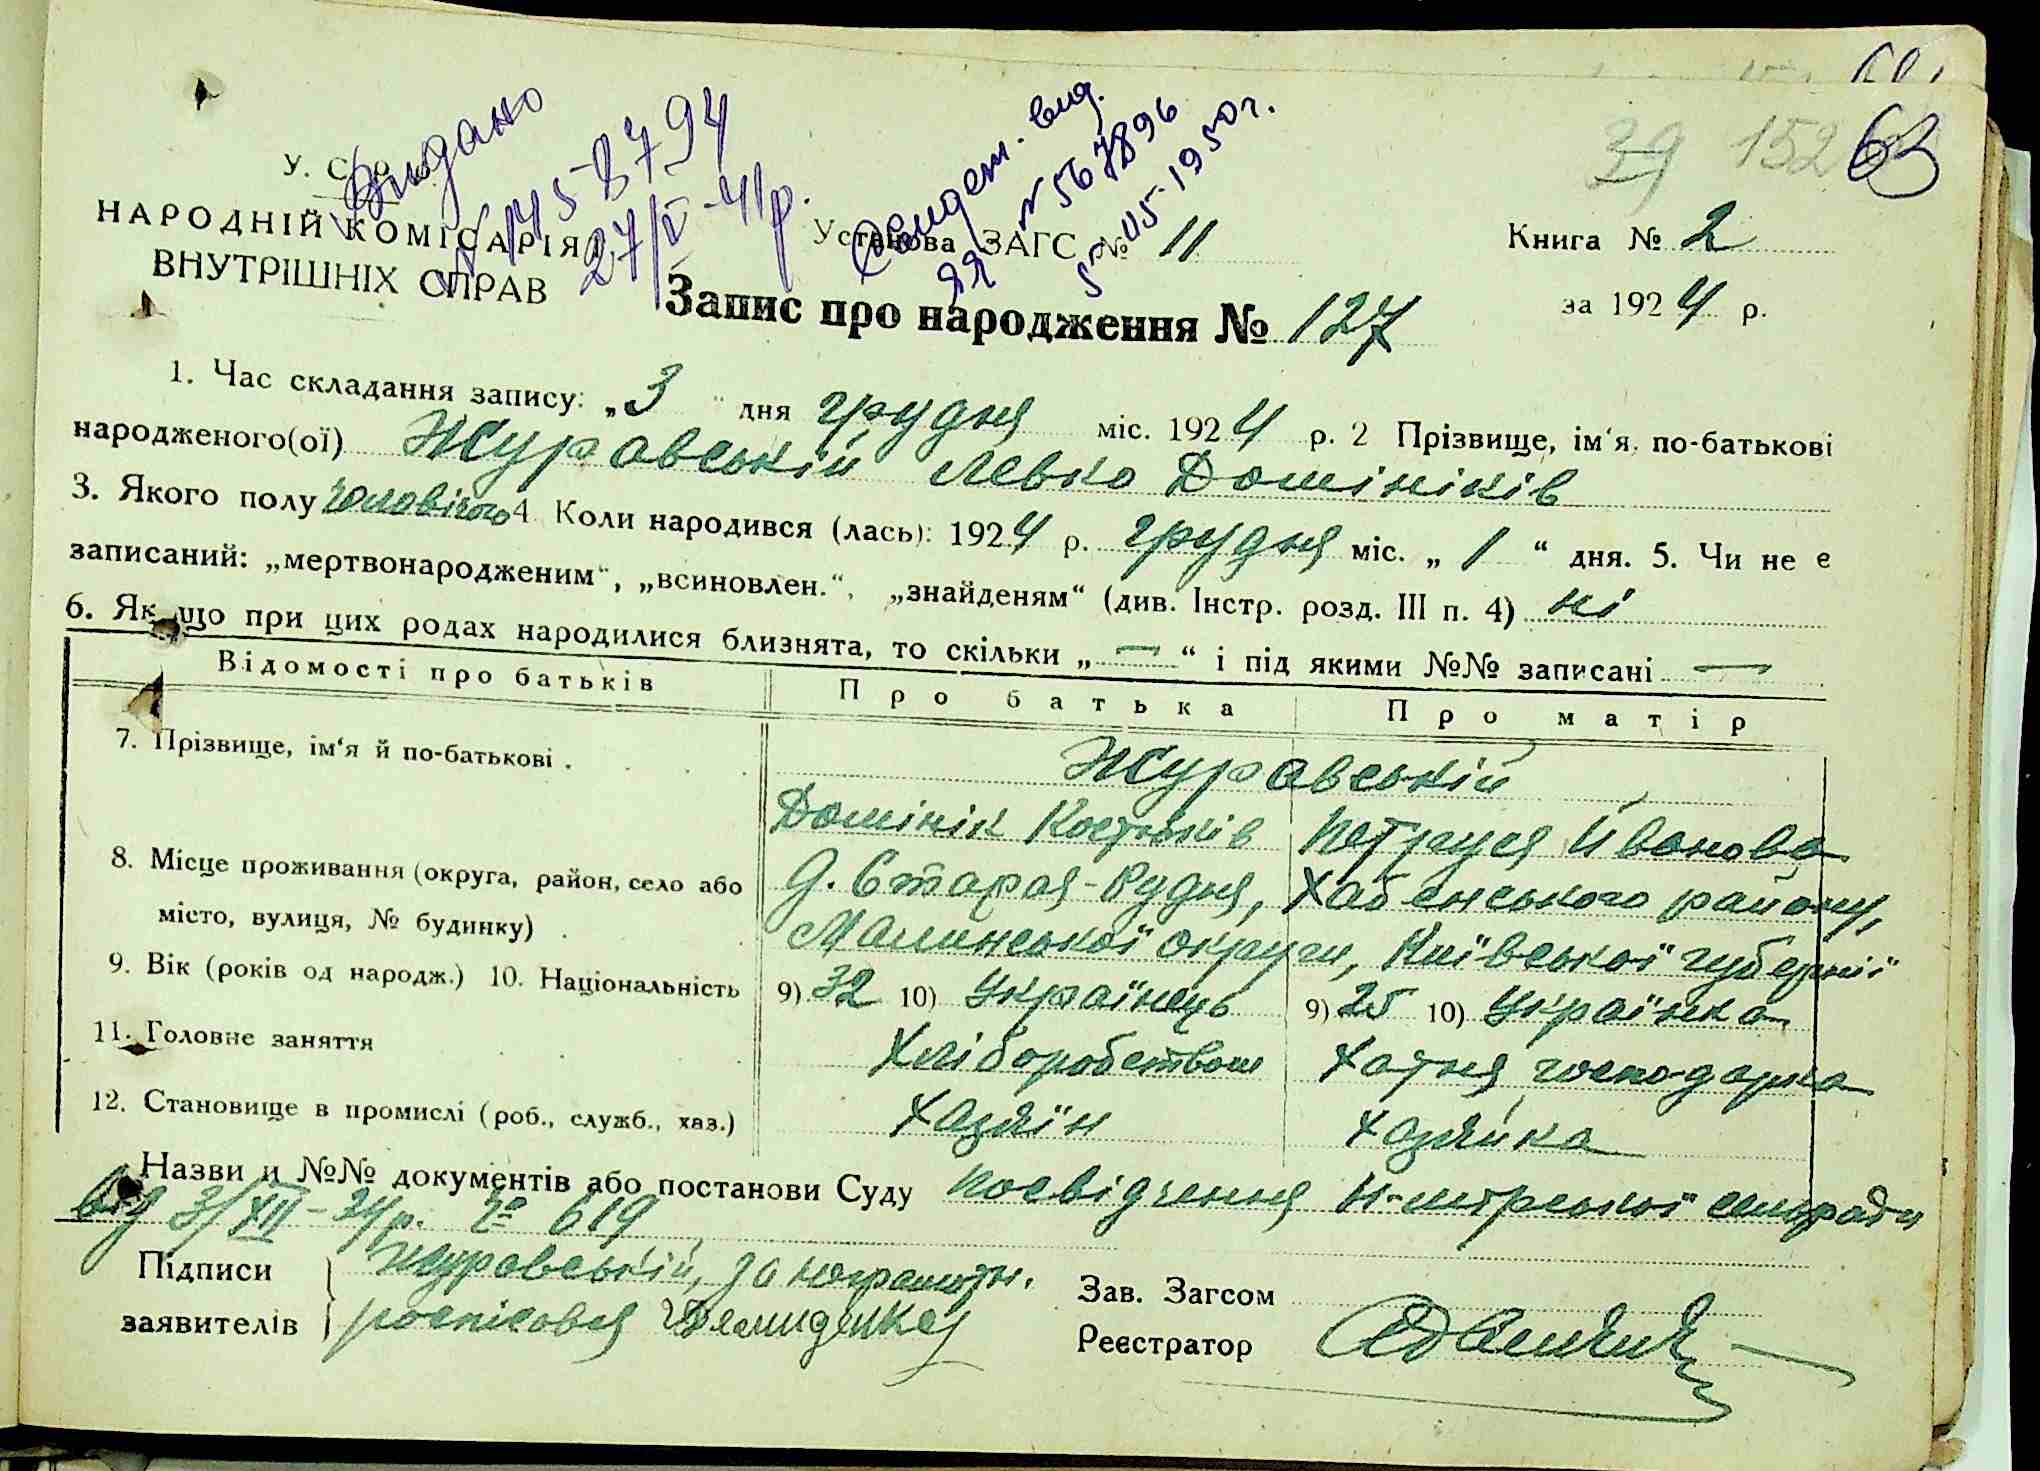 39 152 63
Видано
№ 145-8794
27/V-41р.
Свидет. выд.
ЯЯ № 567896
5-05-1950г.
У. С. Р. Р.
НАРОДНІЙ КОМІСАРІЯТ
ВНУТРІШНІХ СПРАВ
Установа ЗАГС № 11
Книга № 2
за 1924 р.
Запис про народження № 127
1. Час складання запису: „3“ дня грудня міс. 1924 р. 2 Прізвище, ім'я, по-батькові
народженого(ої) Журавський Левко Домініків
3. Якого полу чоловічого 4. Коли народився (лась): 1924 р. грудня міс. „1“ дня. 5. Чи не є
записаний: „мертвонародженим“, „всиновлен.“, „знайденям“ (див. Інстр. розд. III п. 4) ні
6. Якщо при цих родах народилися близнята, то скільки „—“ і під якими №№ записані —
Відомості про батьків Про батька Про матір
7. Прізвище, ім'я й по-батькові . Журавській
Домінік Костюків Петруся Йванова
8. Місце проживання (округа, район, село або д. Старая-Рудня, Хабенського району,
місто, вулиця, № будинку) . Малинської округи, Київської губернії
9. Вік (років од народж.) 10. Національність 9) 32 10) Українець 9) 25 10) Українка
11. Головне заняття Хліборобством Хатня господарка
12. Становище в промислі (роб., служб., хаз.) Хазяїн Хазяйка
Назви и №№ документів або постанови Суду Посвідчення сельради
від 3/XII-24р. № 619
Підписи Журавській, за неграмотн.
заявителів росписовся Демиденко
Зав. Загсом
Реєстратор